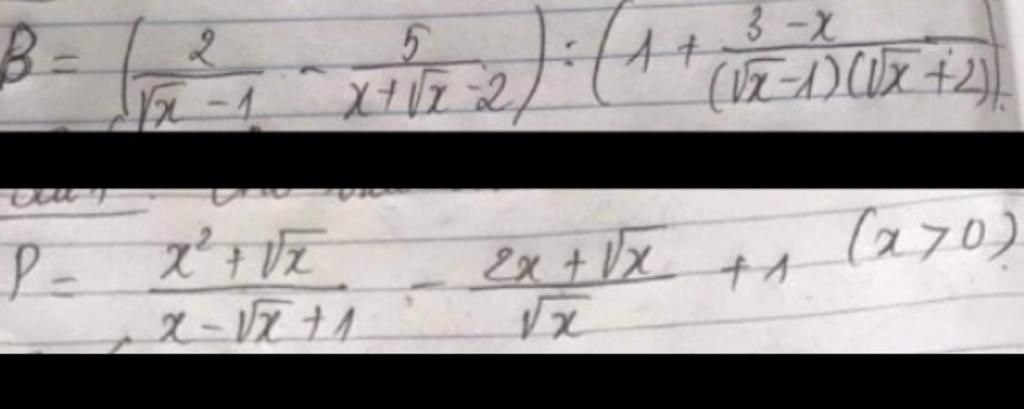 B = (2/(√x - 1) - 5/(x+√x-2)) : (1 + (3-x)/((√x-1)(√x+2)))
P = (x² + √x)/(x - √x + 1) - (2x + √x)/√x + 1 (x > 0)